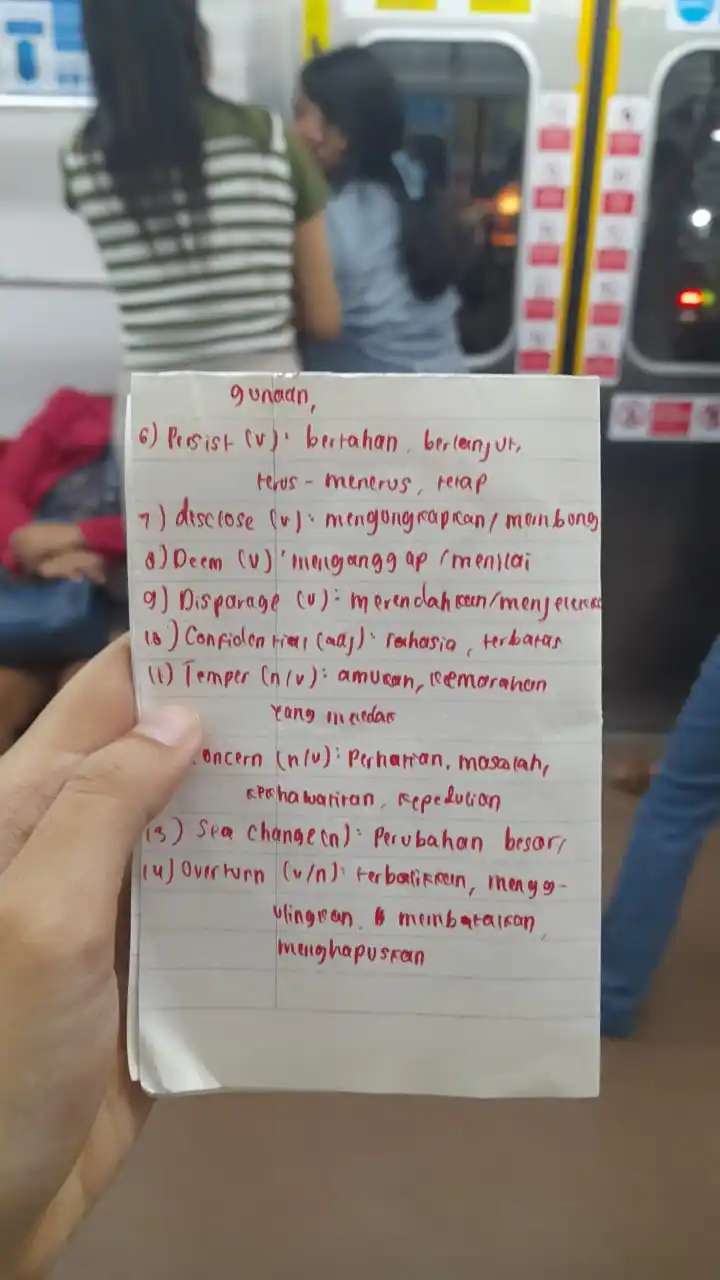 gunaan,
6) Persist (v): bertahan, berlanjut,
terus - menerus, tetap
7) disclose (v): mengungkapkan/membong
8) Deem (v): menganggap / menilai
9) Disparage (v): merendahkan/menjelekka
10) Confidential (adj): rahasia, terbatas
11) Temper (n/v): amukan, kemarahan
yang meledak
oncern (n/v): Perhatian, masalah,
kekhawatiran, kepedulian
13) Sea Change (n): Perubahan besar/
14) Overturn (v/n): terbalikkan, mengg-
ulingkan, membatalkan,
menghapuskan